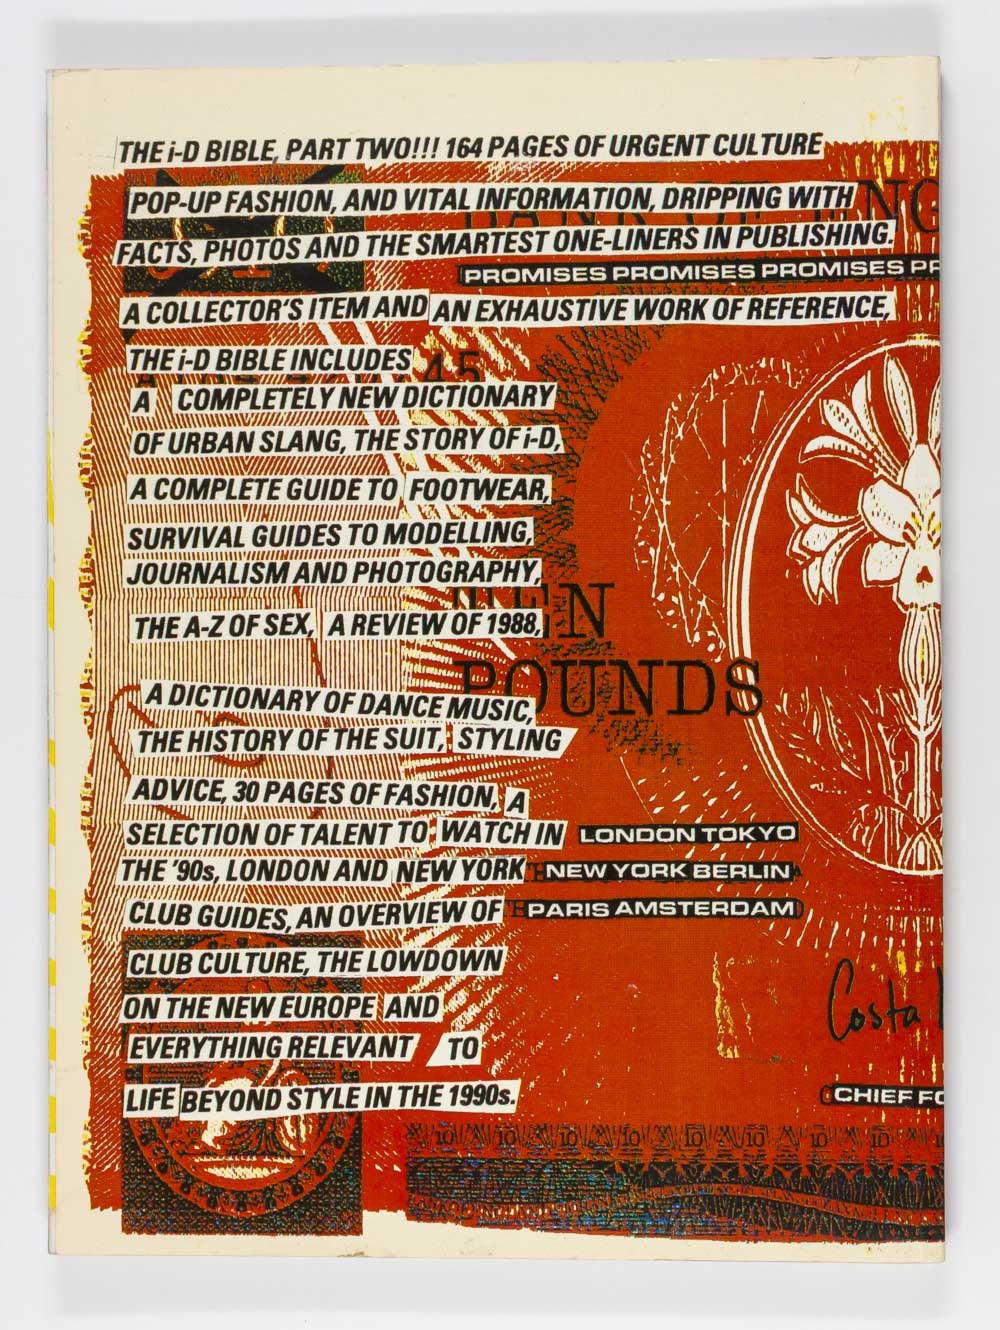 THE i-D BIBLE, PART TWO!!! 164 PAGES OF URGENT CULTURE
POP-UP FASHION, AND VITAL INFORMATION, DRIPPING WITH
BANK OF ENG
FACTS, PHOTOS AND THE SMARTEST ONE-LINERS IN PUBLISHING.
PROMISES PROMISES PROMISES PR
A COLLECTOR'S ITEM AND AN EXHAUSTIVE WORK OF REFERENCE,
THE i-D BIBLE INCLUDES
45
A COMPLETELY NEW DICTIONARY
OF URBAN SLANG, THE STORY OF i-D,
A COMPLETE GUIDE TO FOOTWEAR,
SURVIVAL GUIDES TO MODELLING,
JOURNALISM AND PHOTOGRAPHY,
TEN
THE A-Z OF SEX, A REVIEW OF 1988,
POUNDS
A DICTIONARY OF DANCE MUSIC,
THE HISTORY OF THE SUIT, STYLING
ADVICE, 30 PAGES OF FASHION, A
SELECTION OF TALENT TO WATCH IN
LONDON TOKYO
THE '90s, LONDON AND NEW YORK
NEW YORK BERLIN
CLUB GUIDES, AN OVERVIEW OF
PARIS AMSTERDAM
CLUB CULTURE, THE LOWDOWN
ON THE NEW EUROPE AND
Costa
EVERYTHING RELEVANT TO
LIFE BEYOND STYLE IN THE 1990s.
CHIEF FO
10 10 10 10 10 10 10 10